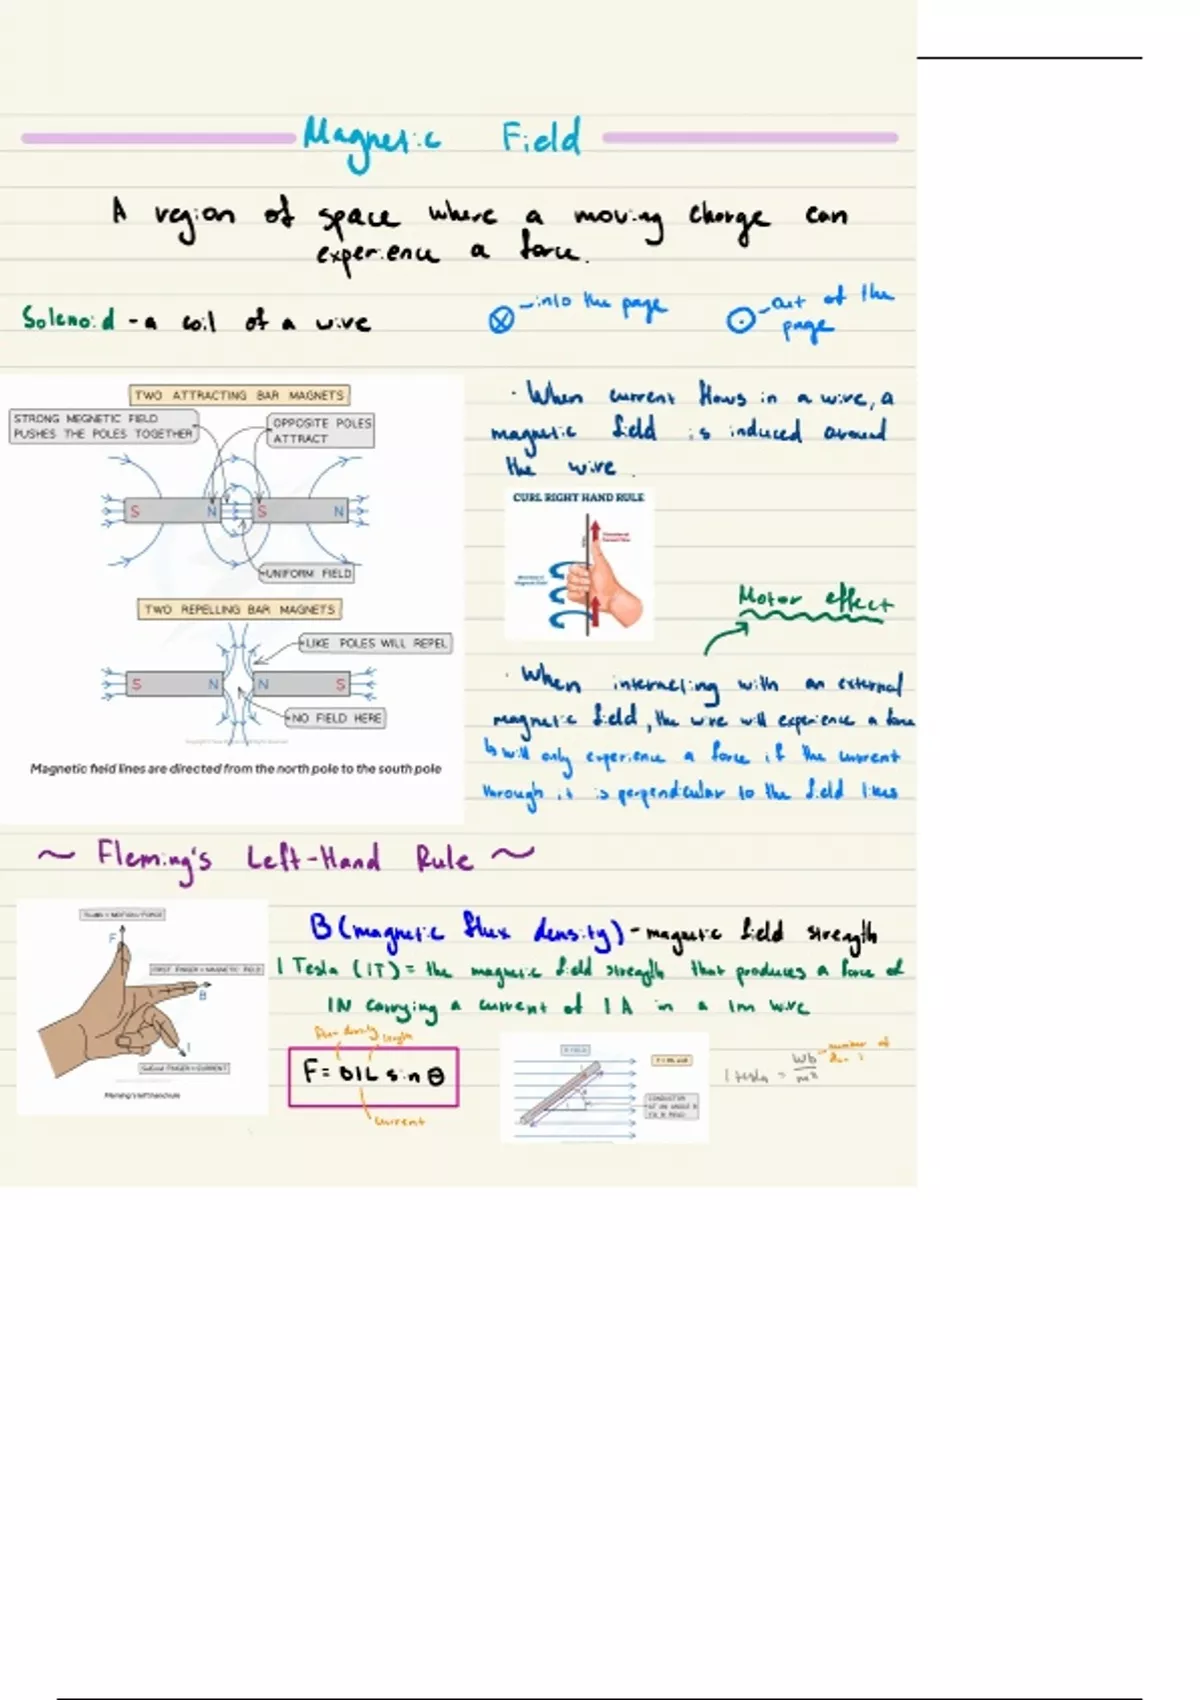 Magnetic Field
A region of space where a moving charge can
experience a force.
Solenoid - a coil of a wire
into the page
out of the
page
TWO ATTRACTING BAR MAGNETS
STRONG MEGNETIC FIELD
PUSHES THE POLES TOGETHER
OPPOSITE POLES
ATTRACT
S N S N
UNIFORM FIELD
TWO REPELLING BAR MAGNETS
LIKE POLES WILL REPEL
S N N S
NO FIELD HERE
Magnetic field lines are directed from the north pole to the south pole
· When current flows in a wire, a
magnetic field is induced around
the wire.
CURL RIGHT HAND RULE
Motor effect
· When interacting with an external
magnetic field, the wire will experience a force
↳ will only experience a force if the current
through it is perpendicular to the field lines
~ Fleming's Left-Hand Rule ~
THUMB = MOTION / FORCE
F
FIRST FINGER = MAGNETIC FIELD
B
I
= CURRENT
Fleming's left hand rule
B (magnetic flux density) - magnetic field strength
1 Tesla (1T) = the magnetic field strength that produces a force of
1N carrying a current of 1A in a 1m wire
flux density
length
F = BIL sin θ
current
B FIELD
CONDUCTOR
AT AN ANGLE θ
TO B FIELD
1 tesla = Wb
m²
number of